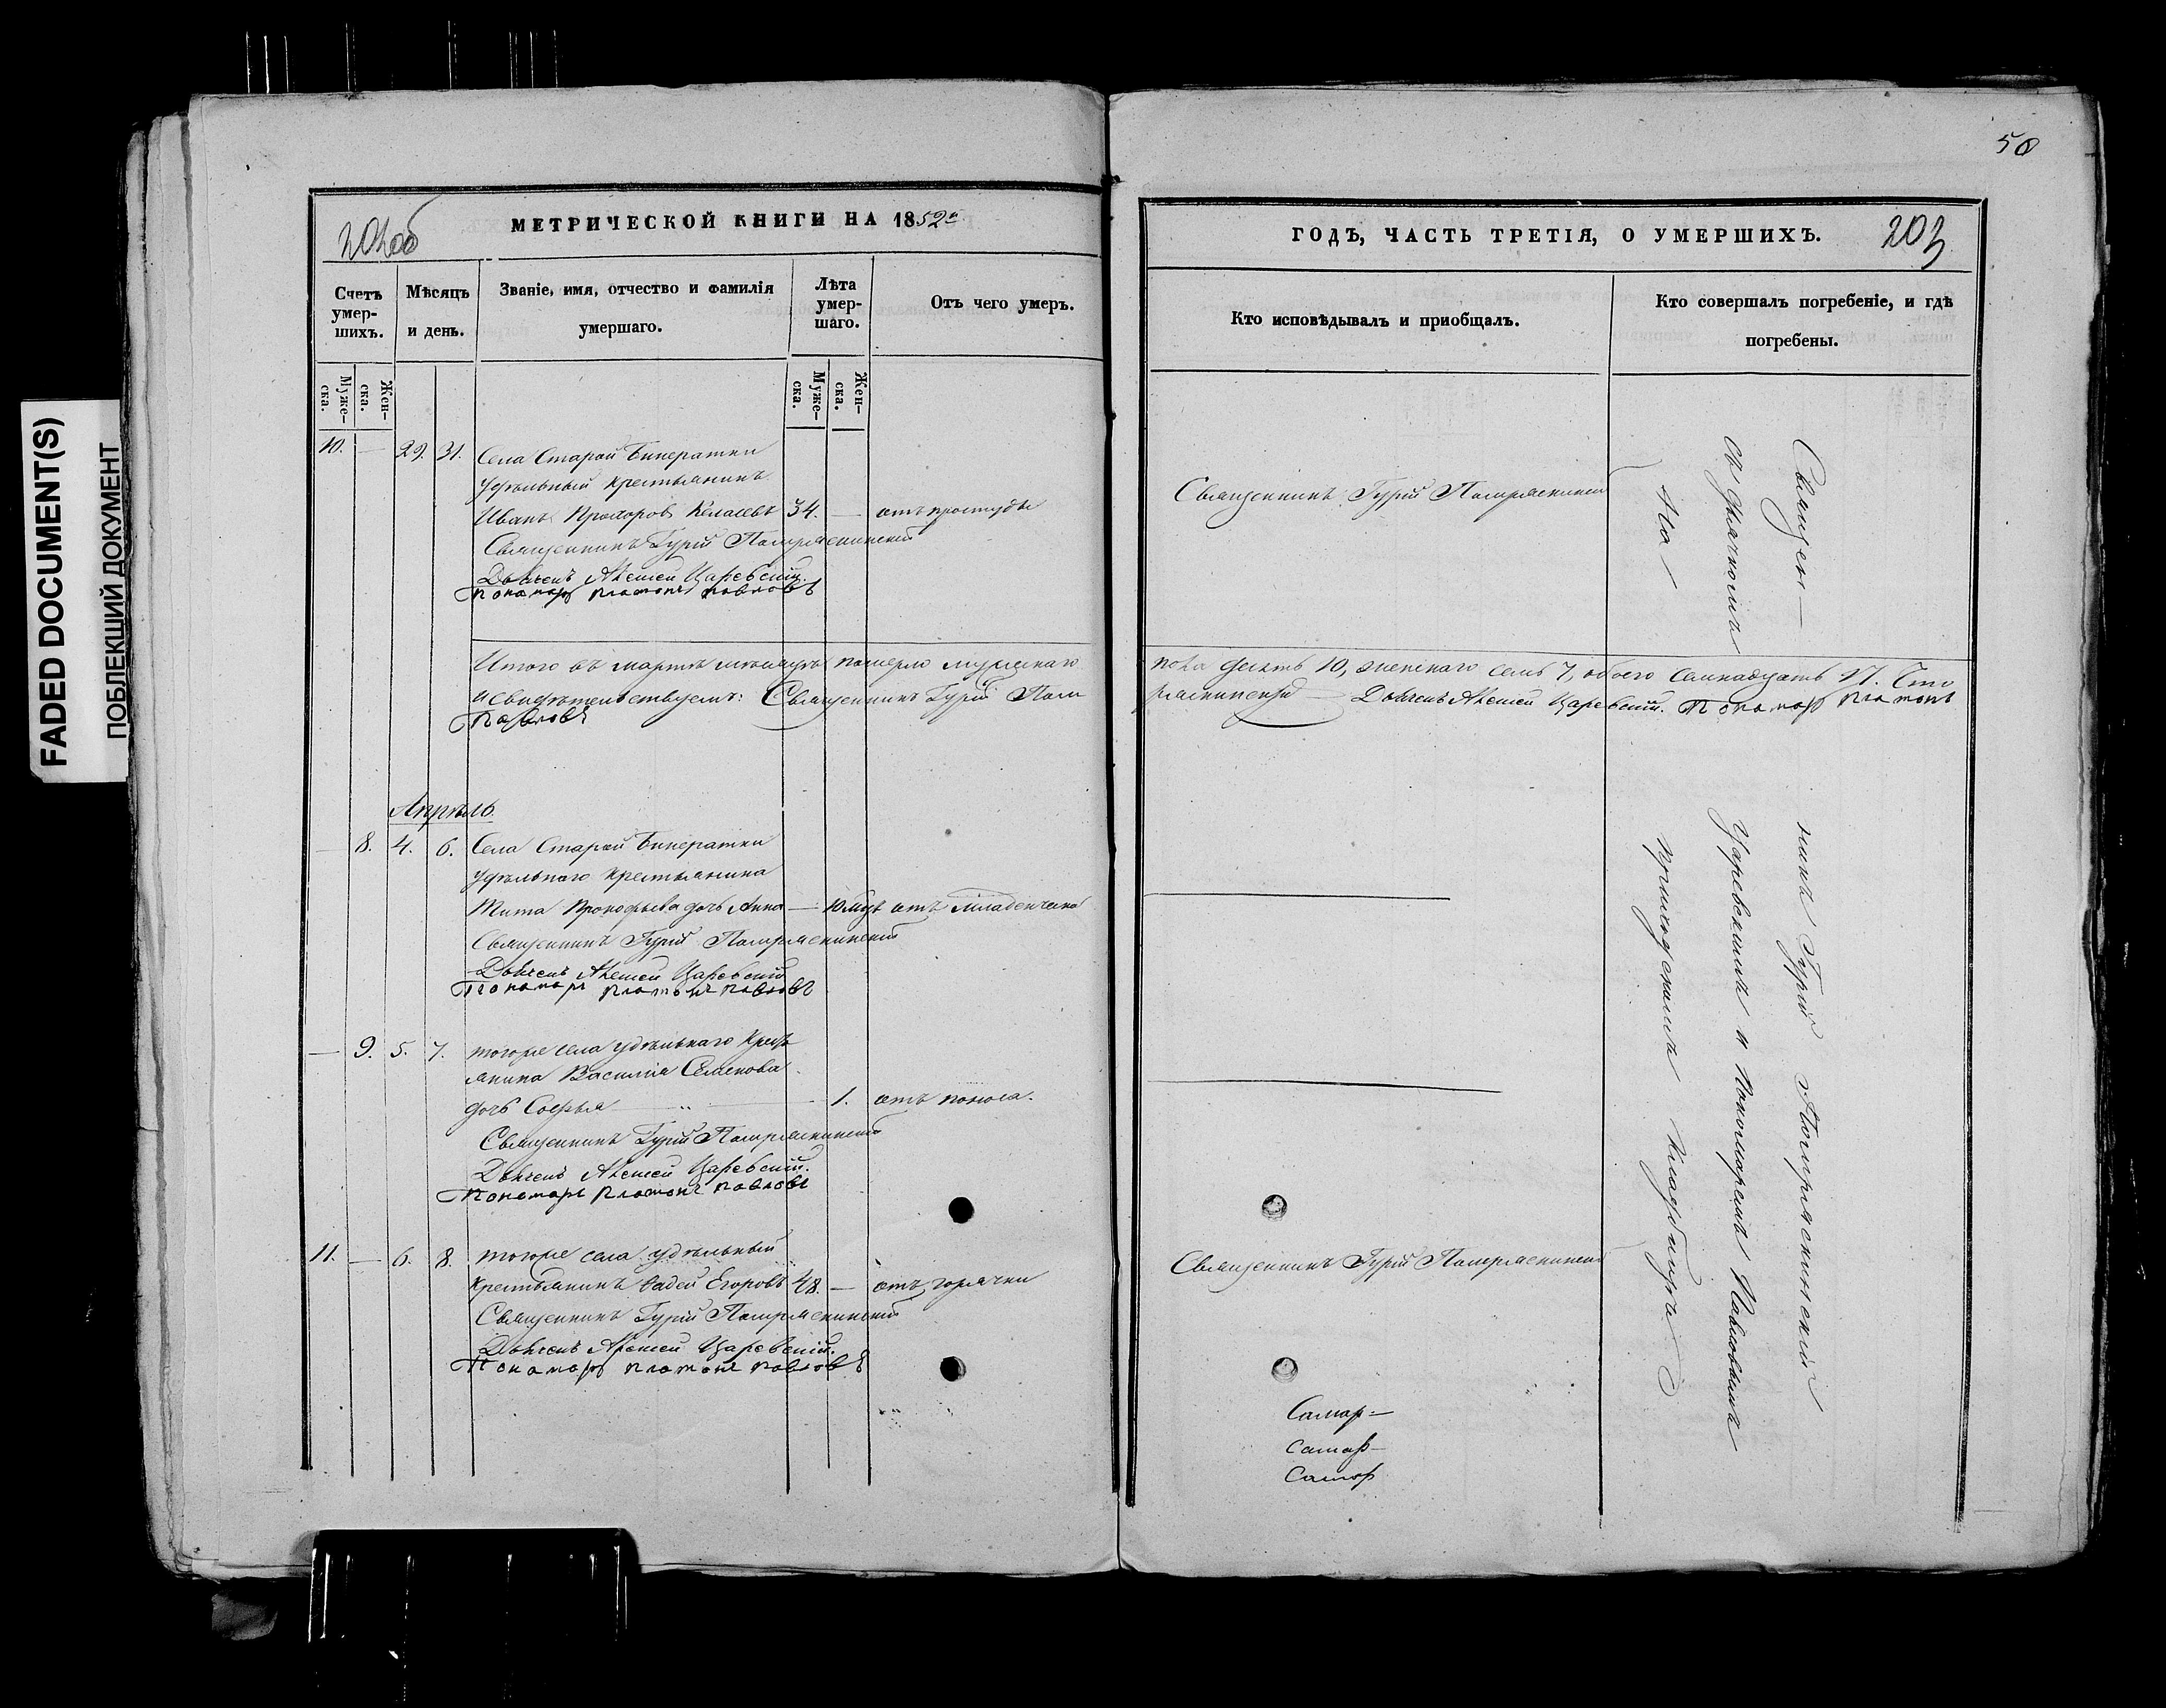 FADED DOCUMENT(S)
ПОБЛЕКШИЙ ДОКУМЕНТ
МЕТРИЧЕСКОЙ КНИГИ НА 1852й
202об
Счетъ умер-
шихъ.
Мѣсяцъ
и день.
Званіе, имя, отчество и фамилія
умершаго.
Лѣта
умер-
шаго.
Отъ чего умеръ.
Муже-
ска.
Жен-
ска.
Муже-
ска.
Жен-
ска.
10. — 29. 31. Села Старой Бинератки
удѣльный крестьянинъ
Иванъ Прохоровъ 34. — отъ простуды
Священникъ Гурій
Дьячекъ Алексей Царевскій.
Пономарь Платонъ Павловъ
Итого въ мартѣ месяцѣ померло мужескаго
и свидѣтельствуемъ: Священникъ Гурій
Павловъ
Апрѣль.
— 8. 4. 6. Села Старой Бинератки
удѣльнаго крестьянина
Тита Прокофьева дочь Анна — 10 мѣс. отъ младенческой
Священникъ Гурій
Дьячекъ Алексей Царевскій
Пономарь Платонъ Павловъ
— 9. 5. 7. тогоже села удѣльнаго крестьянина Василія Семенова
дочь Софья — „ — 1. отъ поноса.
Священникъ Гурій
Дьячекъ Алексей Царевскій.
Пономарь Платонъ Павловъ
11. — 6. 8. тогоже села удѣльный
крестьянинъ Фадей Егоровъ 48. — отъ горячки
Священникъ Гурій
Дьячекъ Алексей Царевскій.
Пономарь Платонъ Павловъ
50
ГОДЪ, ЧАСТЬ ТРЕТІЯ, О УМЕРШИХЪ.
203
Кто исповѣдывалъ и приобщалъ.
Кто совершалъ погребеніе, и гдѣ
погребены.
Священникъ Гурій
пола десять 10, женскаго семь 7, обоего семнадцать 17. Въ томъ
Дьячекъ Алексей Царевскій. Пономарь Платонъ
Священникъ Гурій
Самар-
Самар-
Самар
Священ- никъ Гурій
съ дьячкомъ Царевскимъ и Пономаремъ Павловымъ
На приходскомъ кладбищѣ